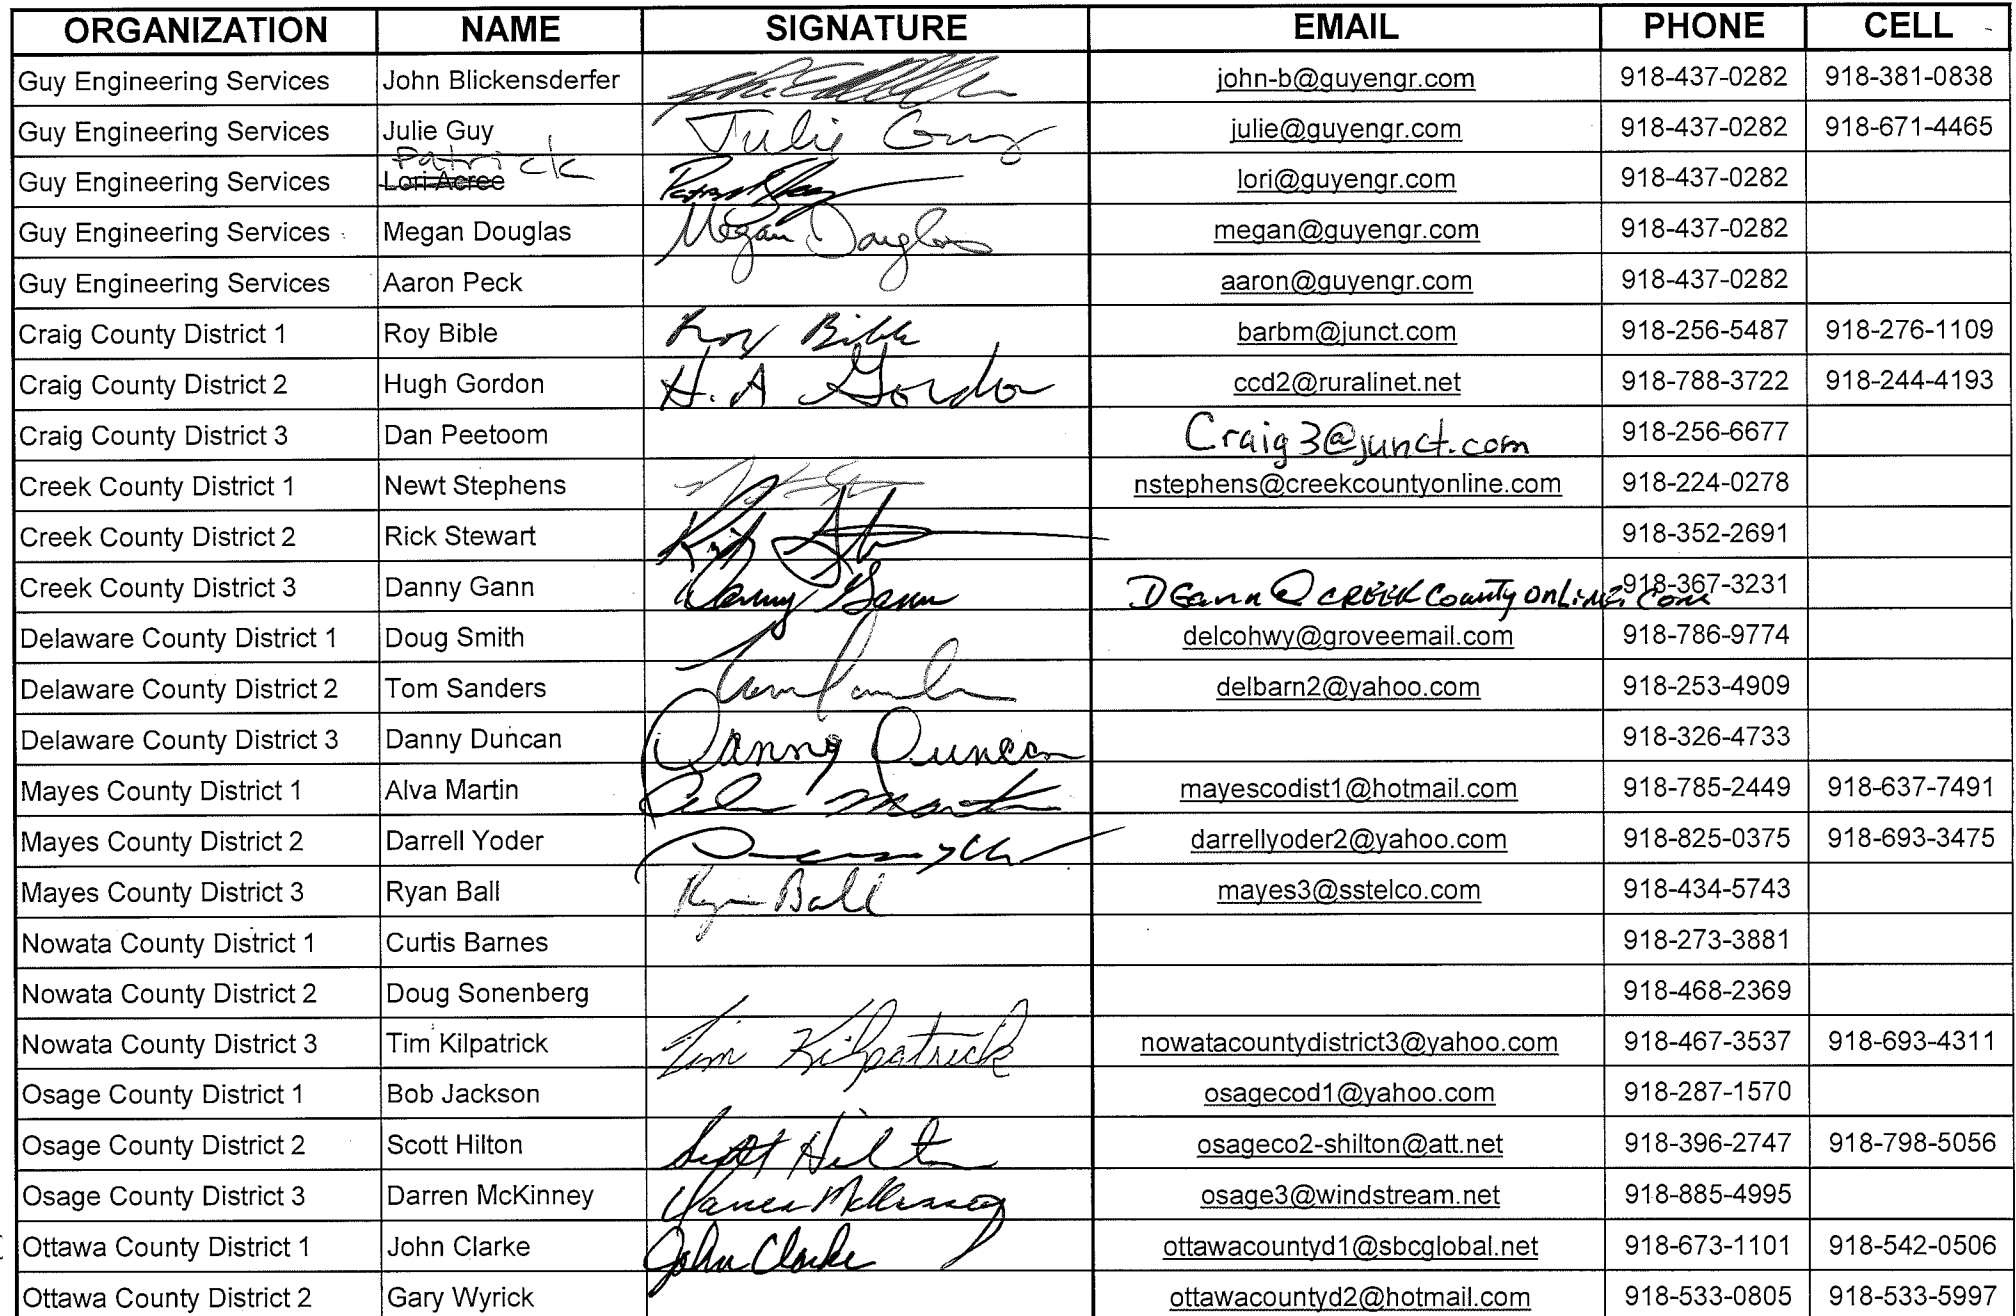 ORGANIZATION NAME SIGNATURE EMAIL PHONE CELL
Guy Engineering Services John Blickensderfer john-b@guyengr.com 918-437-0282 918-381-0838
Guy Engineering Services Julie Guy Julie Guy julie@guyengr.com 918-437-0282 918-671-4465
Patrick
Guy Engineering Services Lori Acree lori@guyengr.com 918-437-0282
Guy Engineering Services Megan Douglas Megan Douglas megan@guyengr.com 918-437-0282
Guy Engineering Services Aaron Peck aaron@guyengr.com 918-437-0282
Craig County District 1 Roy Bible Roy Bible barbm@junct.com 918-256-5487 918-276-1109
Craig County District 2 Hugh Gordon H. A Gordon ccd2@ruralinet.net 918-788-3722 918-244-4193
Craig County District 3 Dan Peetoom Craig3@junct.com 918-256-6677
Creek County District 1 Newt Stephens nstephens@creekcountyonline.com 918-224-0278
Creek County District 2 Rick Stewart 918-352-2691
Creek County District 3 Danny Gann Danny Gann DGann@CREEKCountyOnLiNE.Com 918-367-3231
Delaware County District 1 Doug Smith delcohwy@groveemail.com 918-786-9774
Delaware County District 2 Tom Sanders delbarn2@yahoo.com 918-253-4909
Delaware County District 3 Danny Duncan Danny Duncan 918-326-4733
Mayes County District 1 Alva Martin Alva Martin mayescodist1@hotmail.com 918-785-2449 918-637-7491
Mayes County District 2 Darrell Yoder darrellyoder2@yahoo.com 918-825-0375 918-693-3475
Mayes County District 3 Ryan Ball Ryan Ball mayes3@sstelco.com 918-434-5743
Nowata County District 1 Curtis Barnes 918-273-3881
Nowata County District 2 Doug Sonenberg 918-468-2369
Nowata County District 3 Tim Kilpatrick Tim Kilpatrick nowatacountydistrict3@yahoo.com 918-467-3537 918-693-4311
Osage County District 1 Bob Jackson osagecod1@yahoo.com 918-287-1570
Osage County District 2 Scott Hilton Scott Hilton osageco2-shilton@att.net 918-396-2747 918-798-5056
Osage County District 3 Darren McKinney Darren McKinney osage3@windstream.net 918-885-4995
Ottawa County District 1 John Clarke John Clarke ottawacountyd1@sbcglobal.net 918-673-1101 918-542-0506
Ottawa County District 2 Gary Wyrick ottawacountyd2@hotmail.com 918-533-0805 918-533-5997